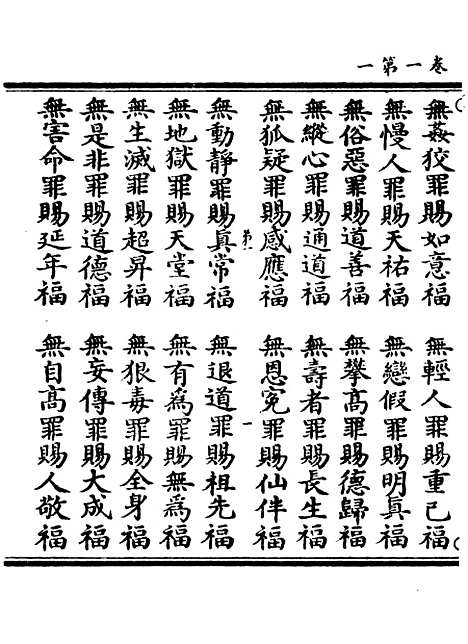 卷一第一
無姦狡罪賜如意福
無輕人罪賜重己福
無慢人罪賜天祐福
無戀假罪賜明真福
無俗惡罪賜道善福
無攀高罪賜德歸福
無縱心罪賜通道福
無壽者罪賜長生福
無狐疑罪賜感應福
無恩冤罪賜仙伴福
無動靜罪賜真常福
無退道罪賜祖先福
無地獄罪賜天堂福
無有為罪賜無為福
無生滅罪賜超昇福
無狠毒罪賜全身福
無是非罪賜道德福
無妄傳罪賜大成福
無害命罪賜延年福
無自高罪賜人敬福